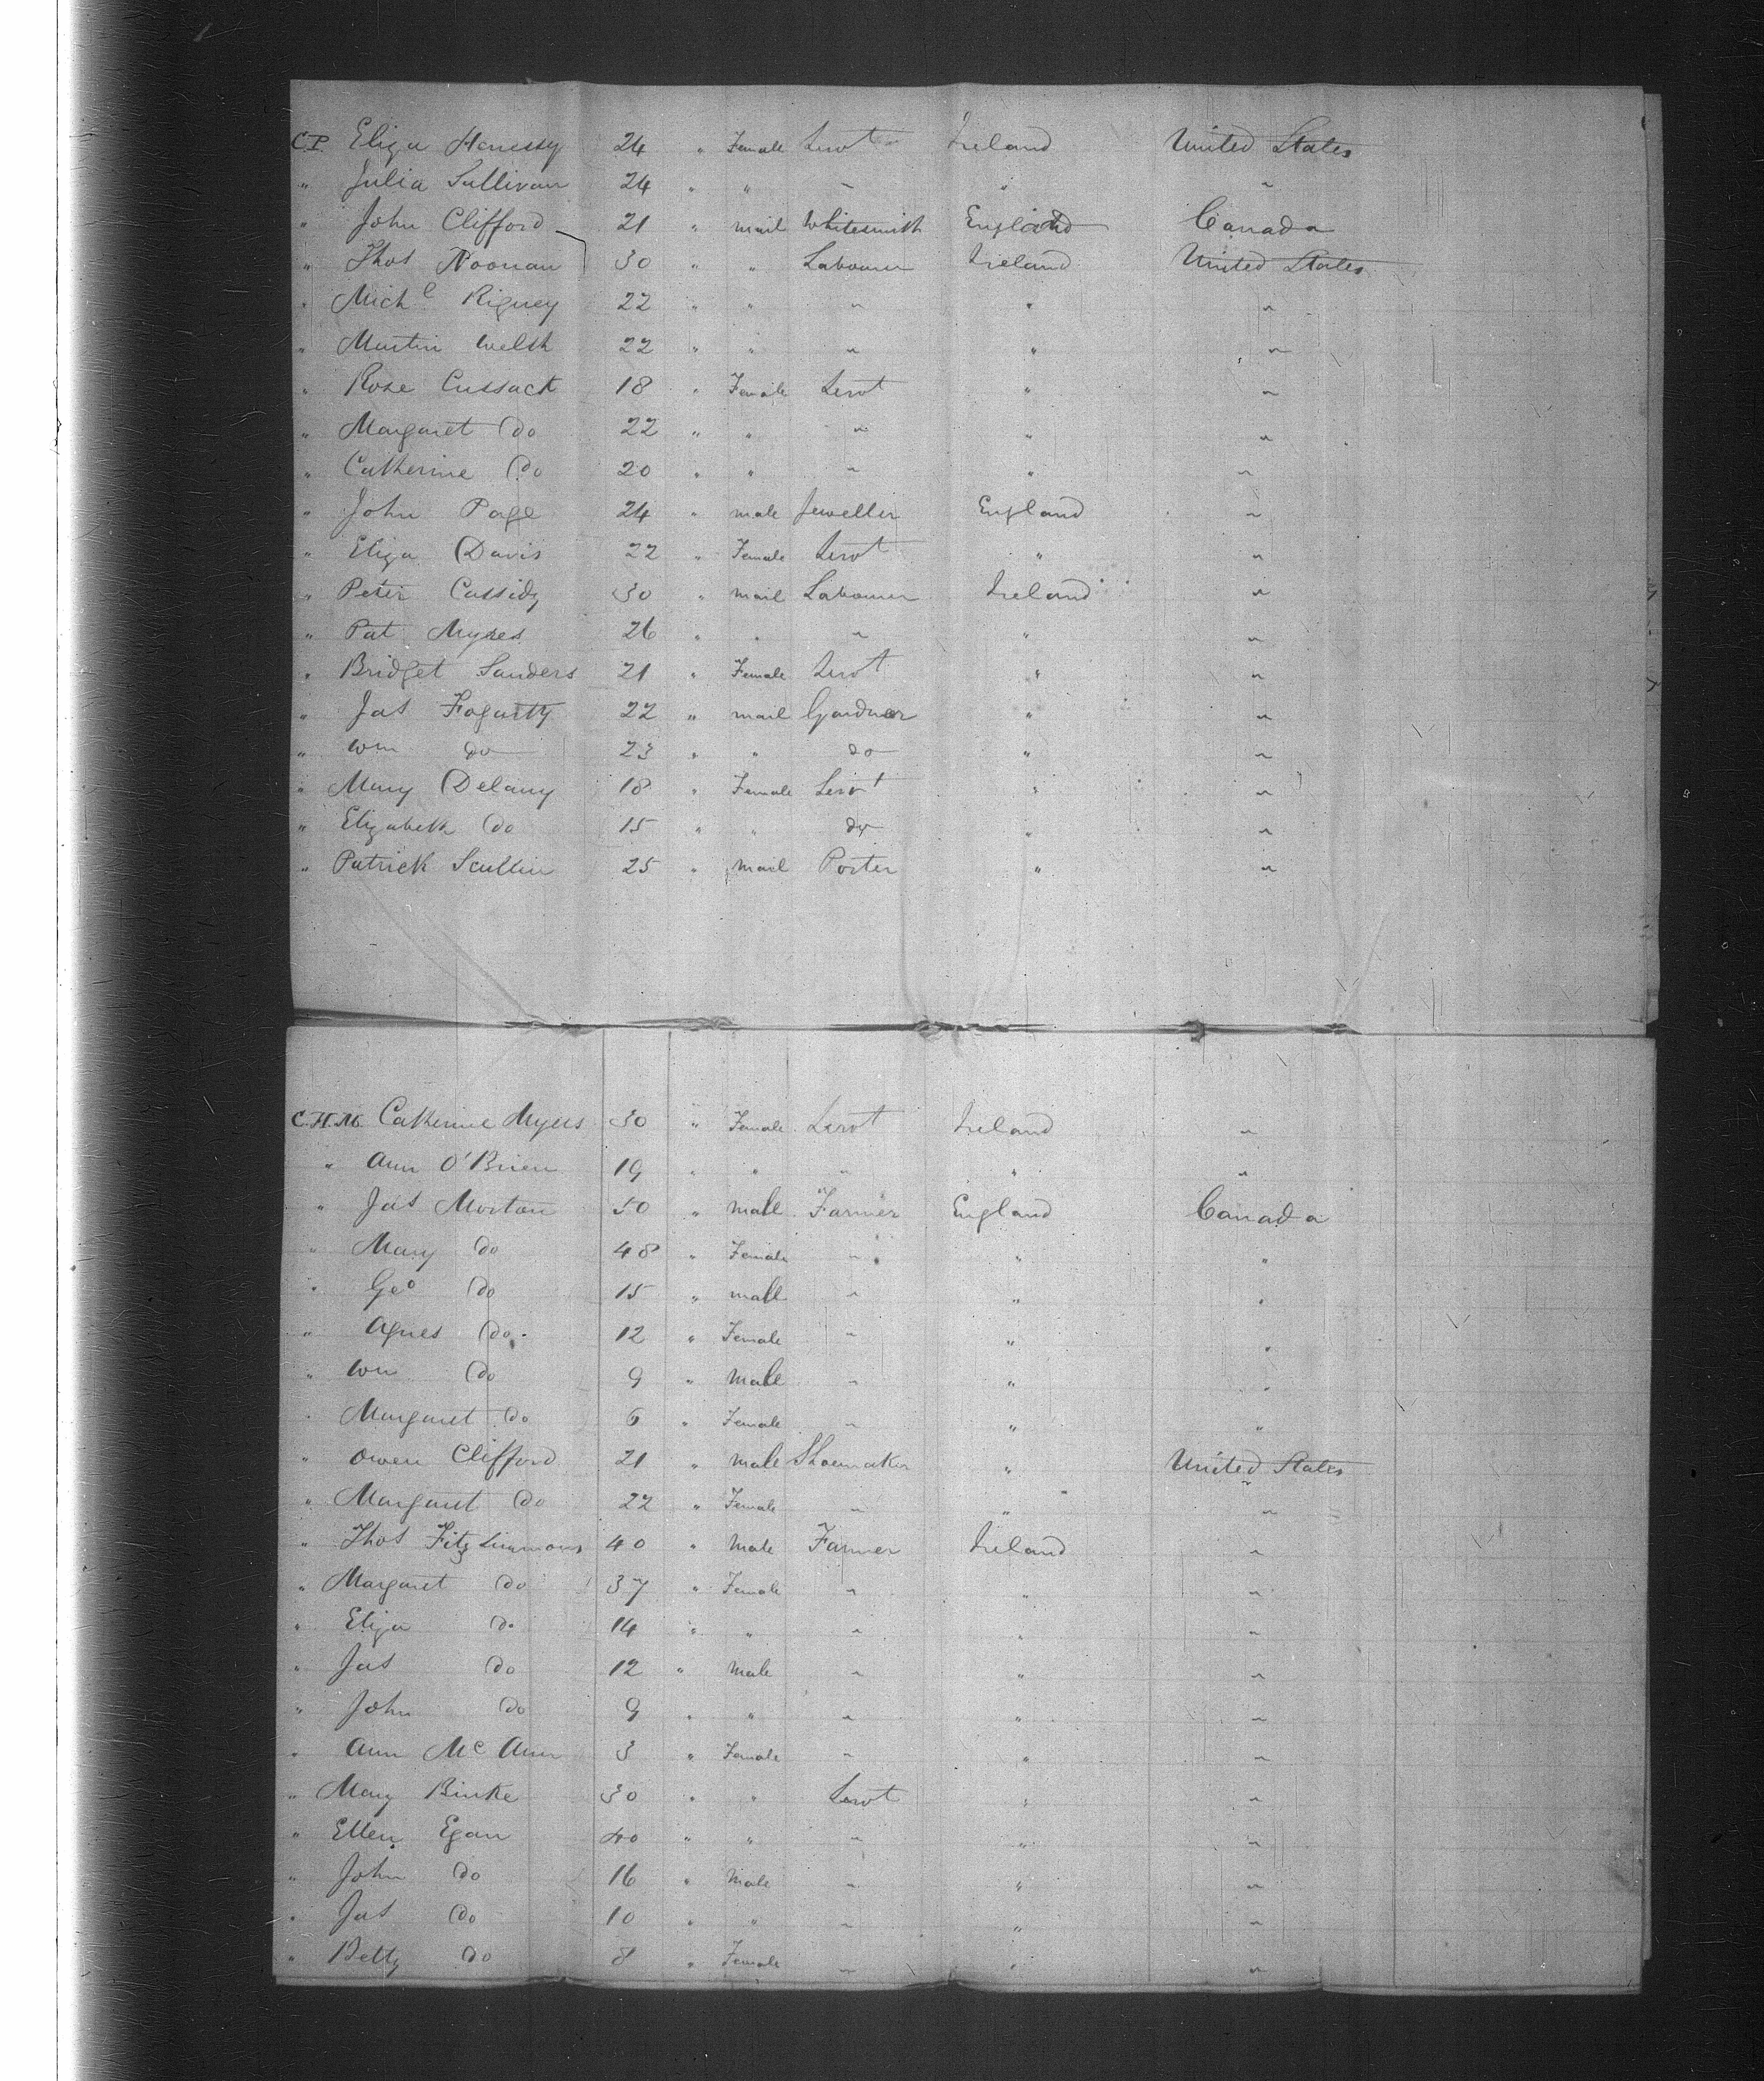 C.P. Eliza Henessy 24 " Female Servt Ireland United States
" Julia Sullivan 24 " " " " "
" John Clifford 21 " mail Whitesmith England Canada
" Thos Noonan 30 " " Labourer Ireland United States
" Michl Rigney 22 " " " " "
" Martin Welsh 22 " " " " "
" Rose Cussack 18 " Female Servt " "
" Margaret Do 22 " " " " "
" Catherine Do 20 " " " " "
" John Page 24 " male Jeweller England "
" Eliza Davis 22 " Female Servt " "
" Peter Cassidy 30 " mail Labourer Ireland "
" Pat Myres 26 " " " " "
" Bridget Sanders 21 " Female Servt " "
" Jas Fogarty 22 " mail Gardner " "
" Wm do 23 " " do " "
" Mary Delany 18 " Female Servt " "
" Elizabeth Do 15 " " do " "
" Patrick Scullin 25 " mail Porter " "
C.H.M. Catherine Myers 30 " Female Servt Ireland "
" Ann O'Brien 19 " " " " "
" Jas Morton 50 " male Farmer England Canada
" Mary Do 48 " Female " " "
" Geo Do 15 " male " " "
" Agnes Do. 12 " Female " " "
" Wm Do 9 " Male " " "
" Margaret Do 6 " Female " " "
" Owen Clifford 21 " male Shoemaker " United States
" Margaret Do 22 " Female " " "
" Thos Fitzsimmons 40 " Male Farmer Ireland "
" Margaret Do 37 " Female " " "
" Eliza Do 14 " " " " "
" Jas Do 12 " Male " " "
" John Do 9 " " " " "
" Ann McAnn 3 " Female " " "
" Mary Burke 30 " " Servt " "
" Ellen Egan 40 " " " " "
" John Do 16 " Male " " "
" Jas Do 10 " " " " "
" Betty Do 8 " Female " " "